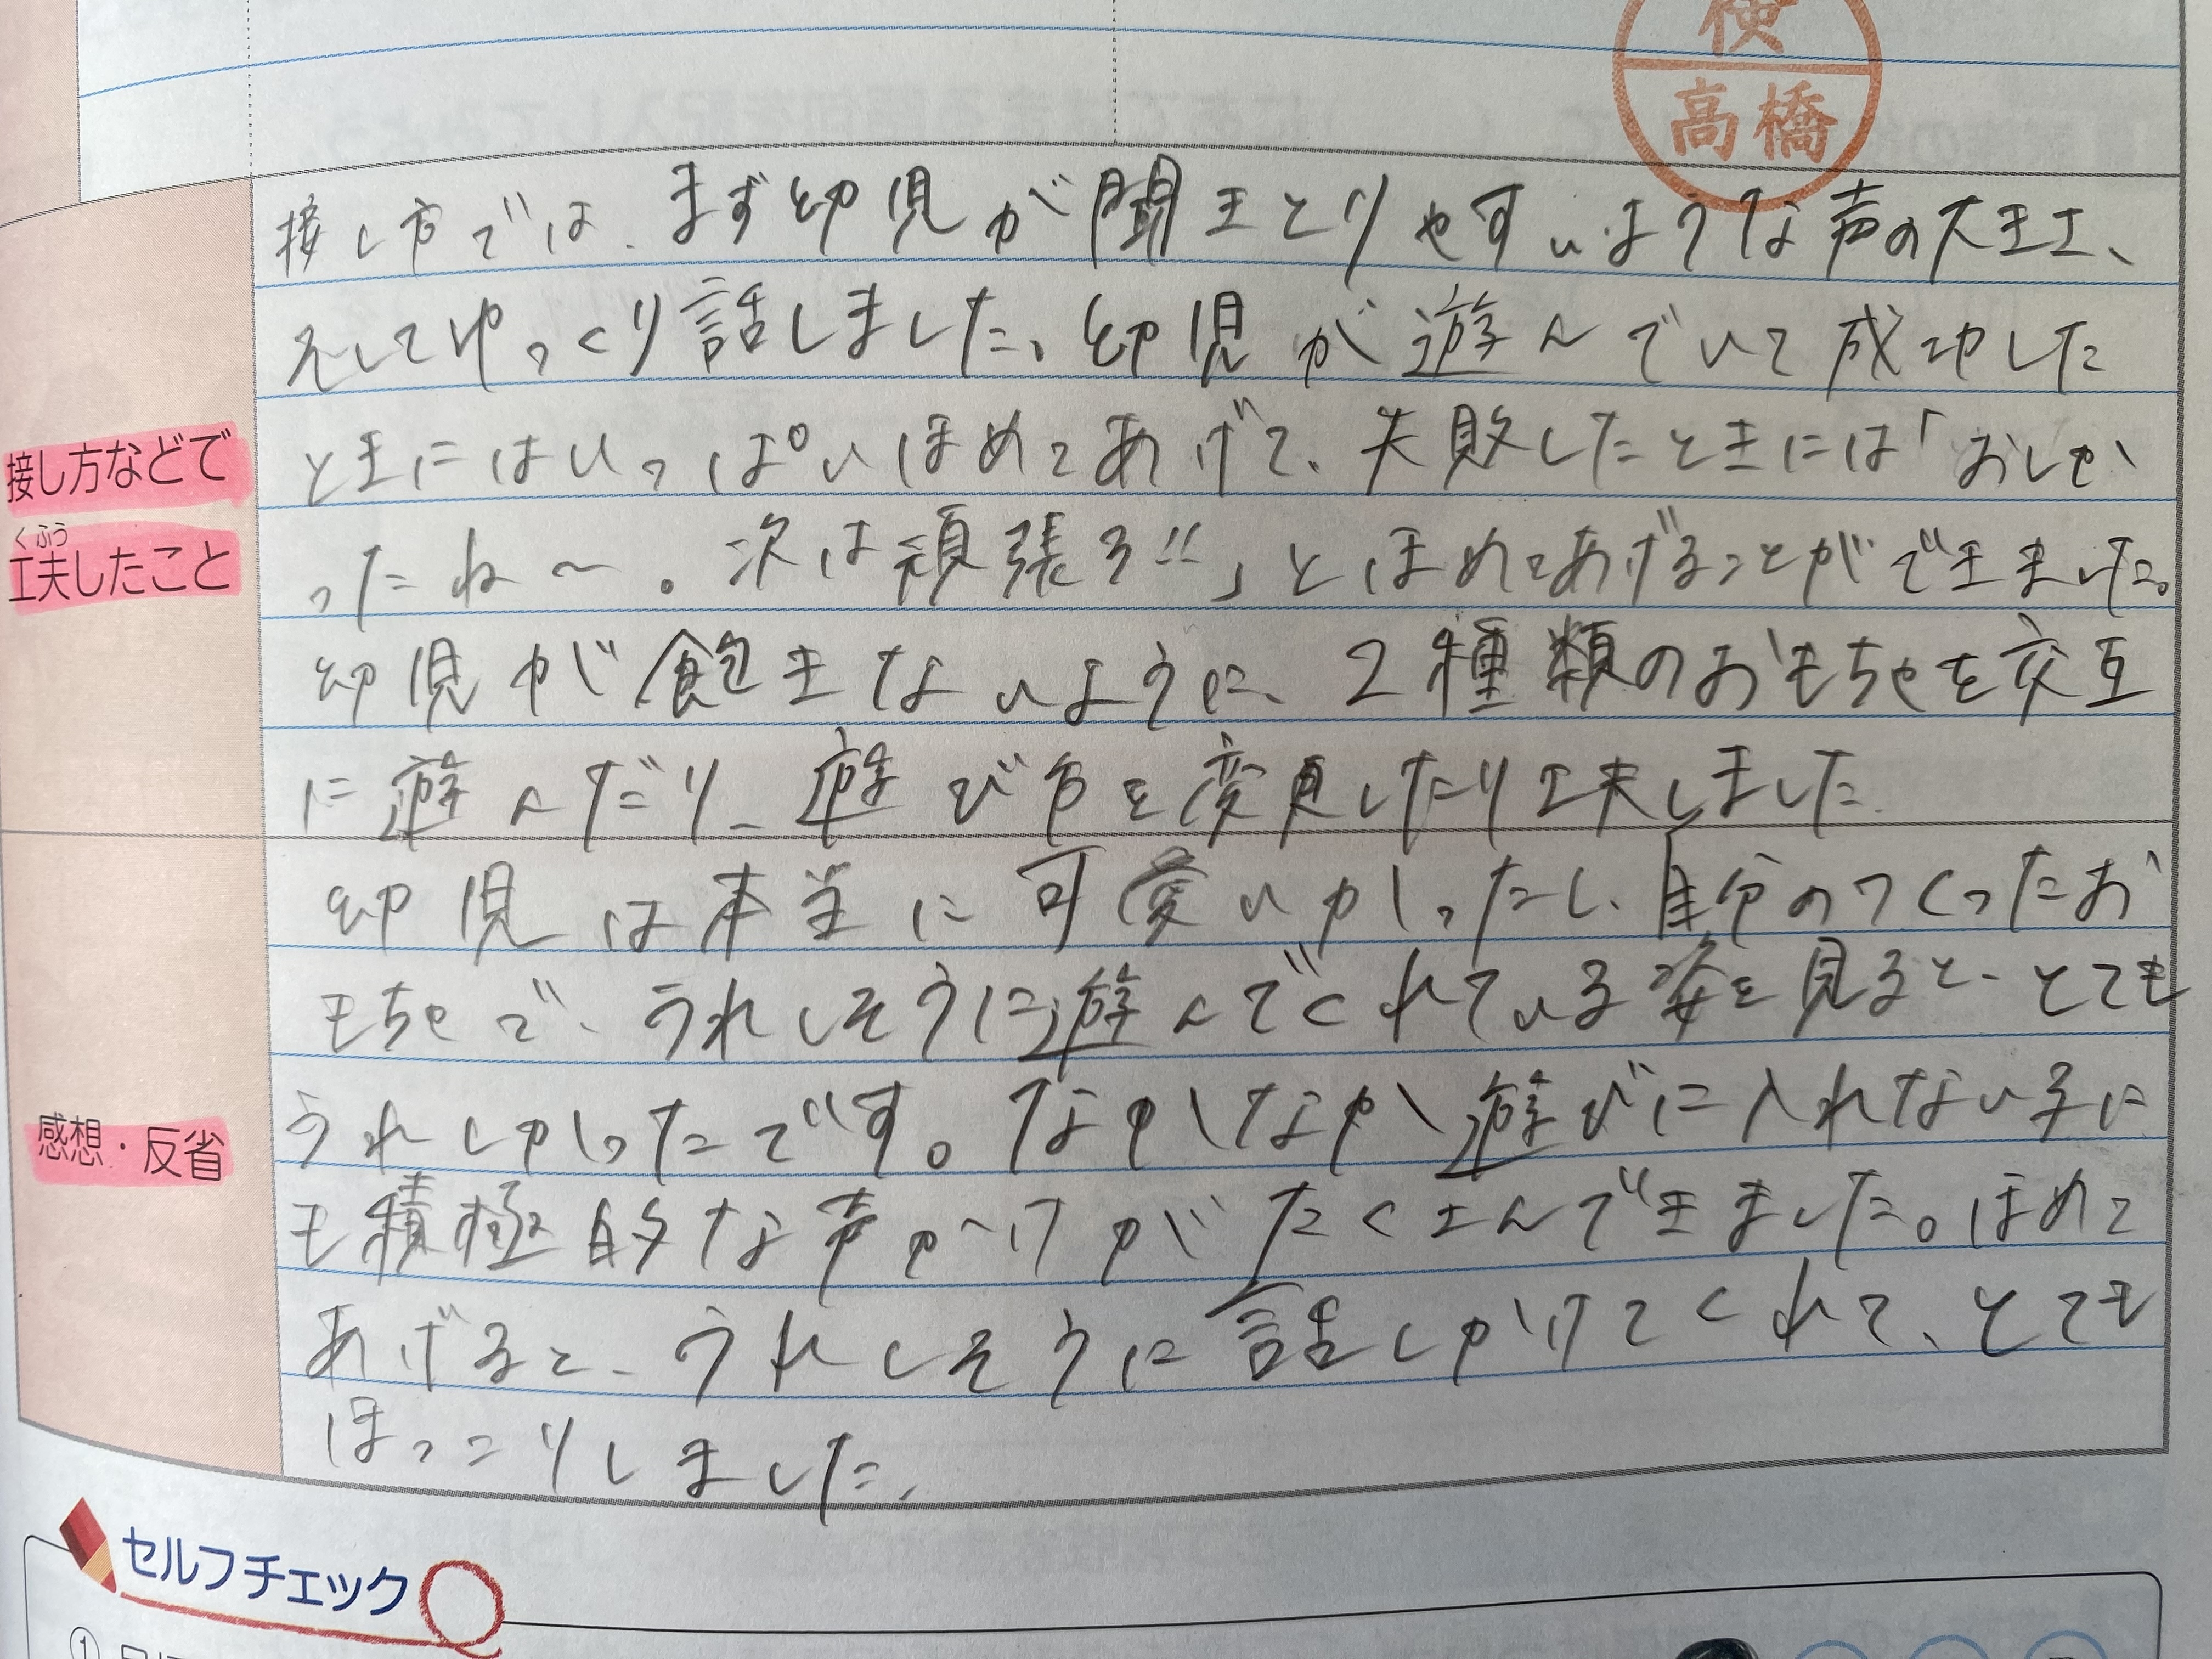 検
高橋
接し方などで
くふう
工夫したこと
接し方では、まず幼児が聞きとりやすいような声の大きさ、
そしてゆっくり話しました。幼児が遊んでいて成功した
ときにはいっぱいほめてあげて、失敗したときには「おしか
ったね～。次は頑張ろ!!」とほめてあげることができました。
幼児が飽きないように、2種類のおもちゃを交互
に遊んだり、遊び方を変更したり工夫しました。
感想・反省
幼児は本当に可愛いかしったし、自分のつくったお
もちゃで、うれしそうに遊んでくれている姿を見ると、とても
うれしかったです。なかなか遊びに入れない子に
も積極的な声かけがたくさんできました。ほめて
あげると、うれしそうに話しかけてくれて、とても
ほっこりしました。
セルフチェック
①